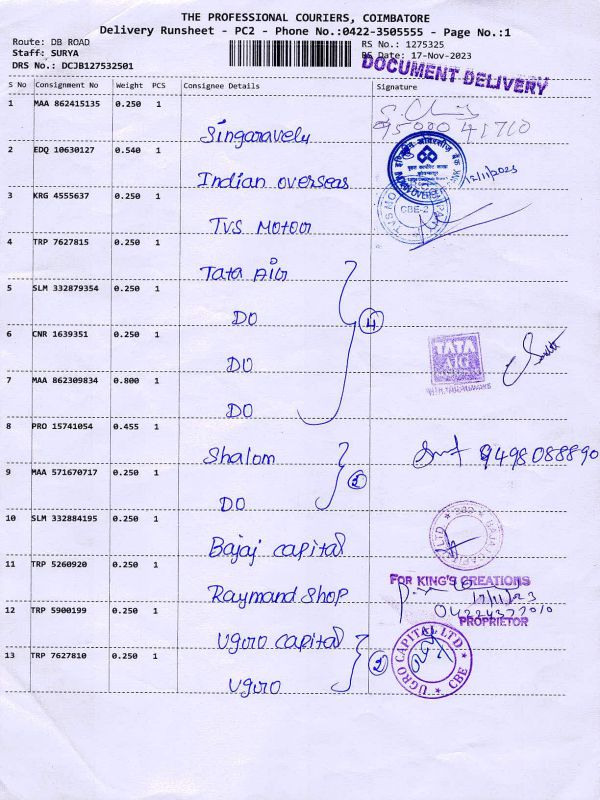 THE PROFESSIONAL COURIERS, COIMBATORE
Delivery Runsheet - PC2 - Phone No.:0422-3505555 - Page No.:1
Route: DB ROAD
Staff: SURYA
DRS No.: DCJB127532501
RS No.: 1275325
RS Date: 17-Nov-2023
DOCUMENT DELIVERY
S No Consignment No Weight PCS Consignee Details Signature
1 MAA 862415135 0.250 1 Singaravelu
95000 41710
2 EDQ 10630127 0.540 1 Indian overseas
3 KRG 4555637 0.250 1 TVS Motoor
CBE-2
4 TRP 7627815 0.250 1 Tata AiG
5 SLM 332879354 0.250 1 DO
4
6 CNR 1639351 0.250 1 DO
TATA
AIG
7 MAA 862309834 0.800 1 DO
8 PRO 15741054 0.455 1 Shalom
9498088890
9 MAA 571670717 0.250 1 DO
2
10 SLM 332884195 0.250 1 Bajaj capital
11 TRP 5260920 0.250 1 Raymand Shop
FOR KING'S CREATIONS
17/11/23
PROPRIETOR
12 TRP 5900199 0.250 1 Ugoro capital
13 TRP 7627810 0.250 1 Ugoro
2
UGRO CAPITAL LTD
CBE